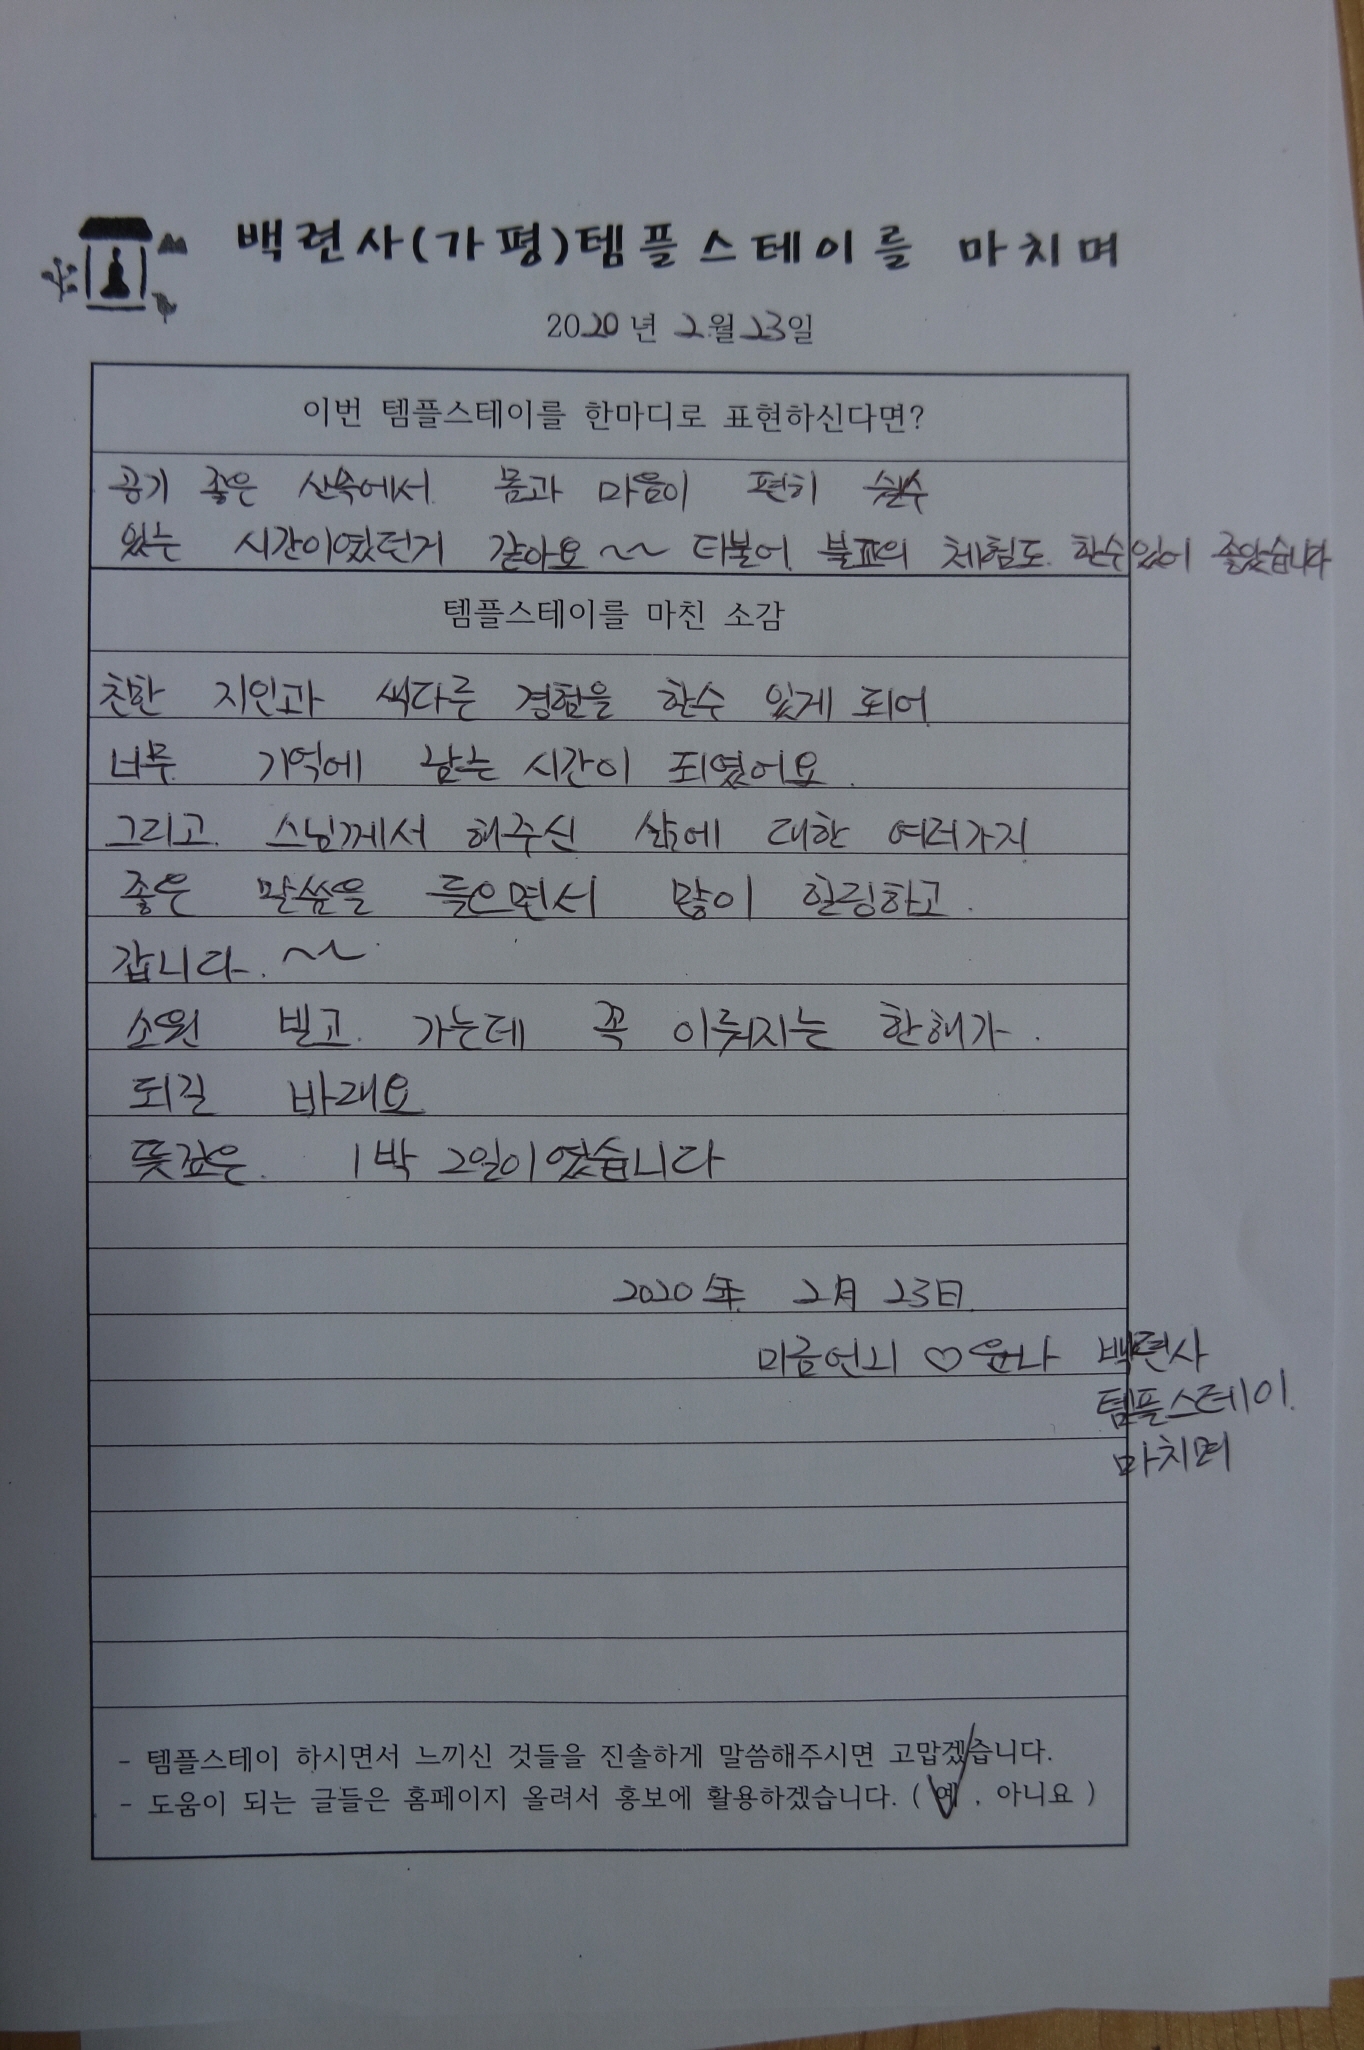 백련사(가평)템플스테이를 마치며
2020년 2월 23일
이번 템플스테이를 한마디로 표현하신다면?
공기 좋은 산속에서 몸과 마음이 편히 쉴수
있는 시간이였던거 같아요 ~~ 더불어 불교의 체험도 할수있어 좋았습니다
템플스테이를 마친 소감
친한 지인과 색다른 경험을 할수 있게 되어
너무 기억에 남는 시간이 되였어요.
그리고 스님께서 해주신 삶에 대한 여러가지
좋은 말씀을 들으면서 많이 힐링하고
갑니다. ~~
소원 빌고 가는데 꼭 이뤄지는 한해가.
되길 바래요
뜻깊은 1박 2일이였습니다
2020年 2月 23日
미금언니 ♡ 윤나 백련사
템플스테이
마치며
- 템플스테이 하시면서 느끼신 것들을 진솔하게 말씀해주시면 고맙겠습니다.
- 도움이 되는 글들은 홈페이지 올려서 홍보에 활용하겠습니다. ( 예 , 아니요 )